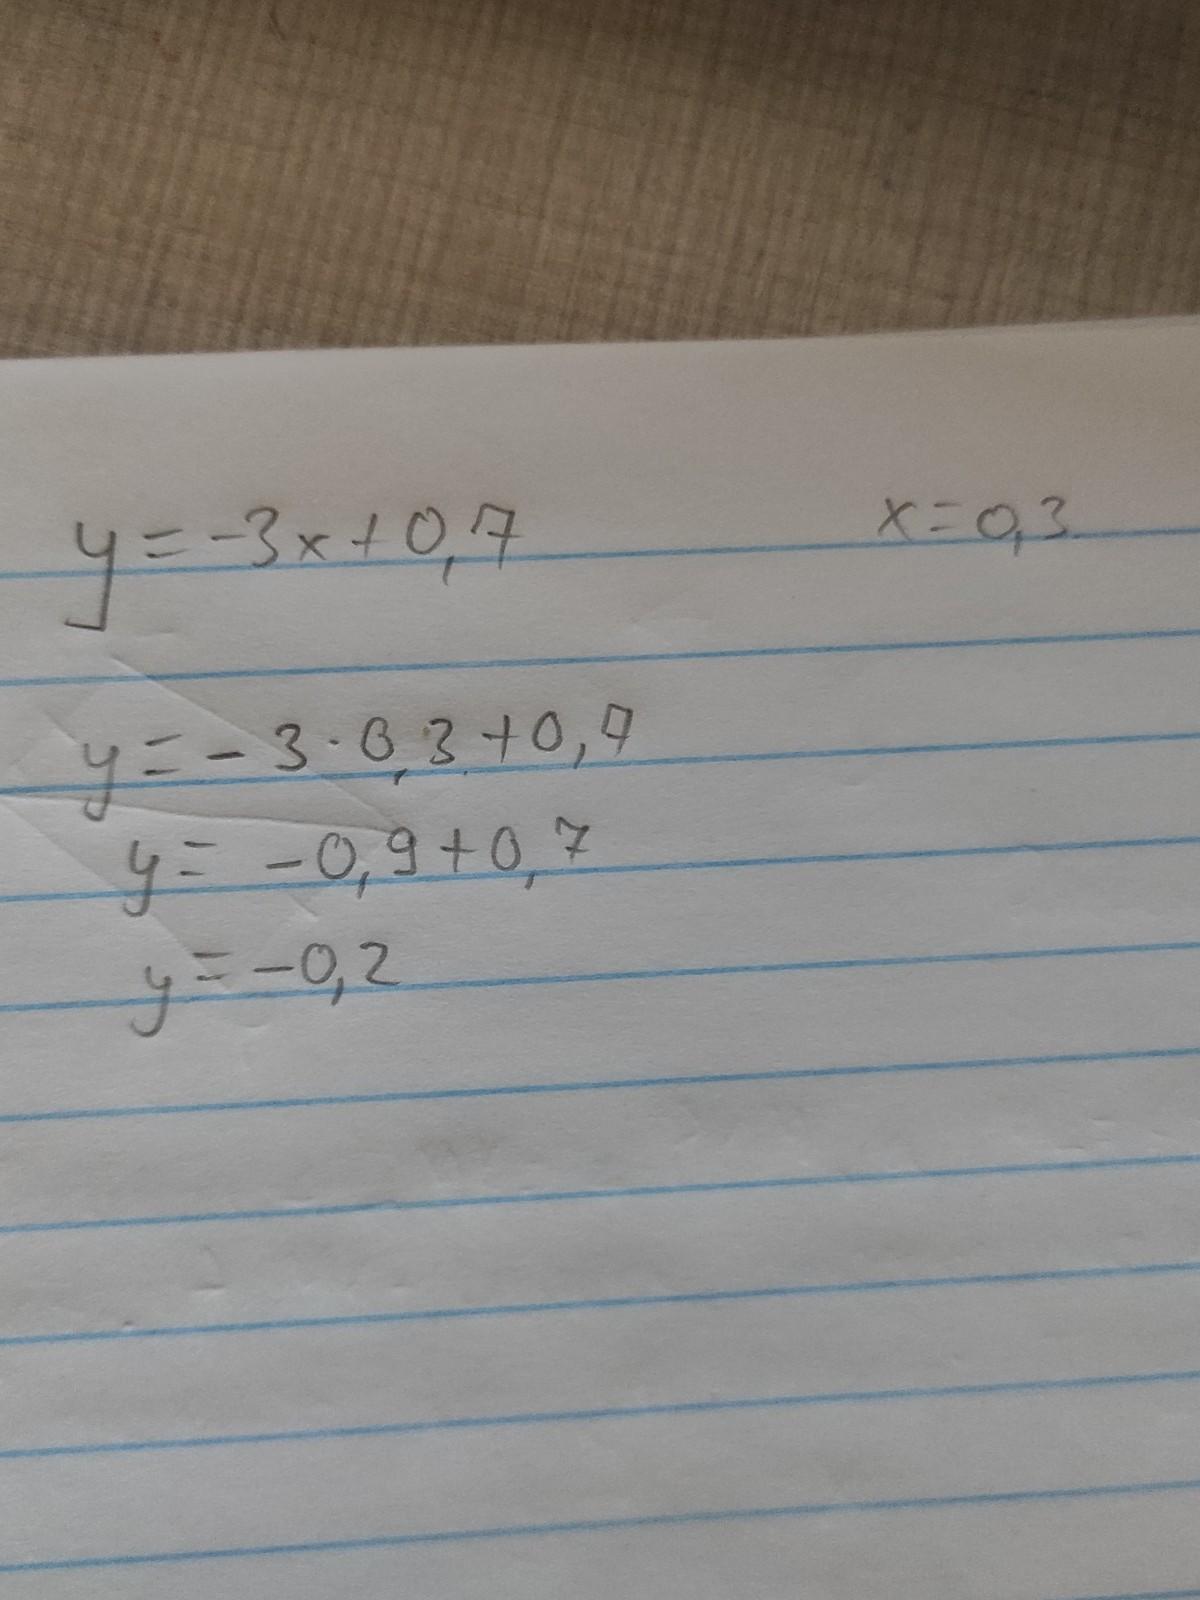 y = -3x + 0,7 x = 0,3
y = - 3 · 0,3 + 0,7
y = -0,9 + 0,7
y = -0,2